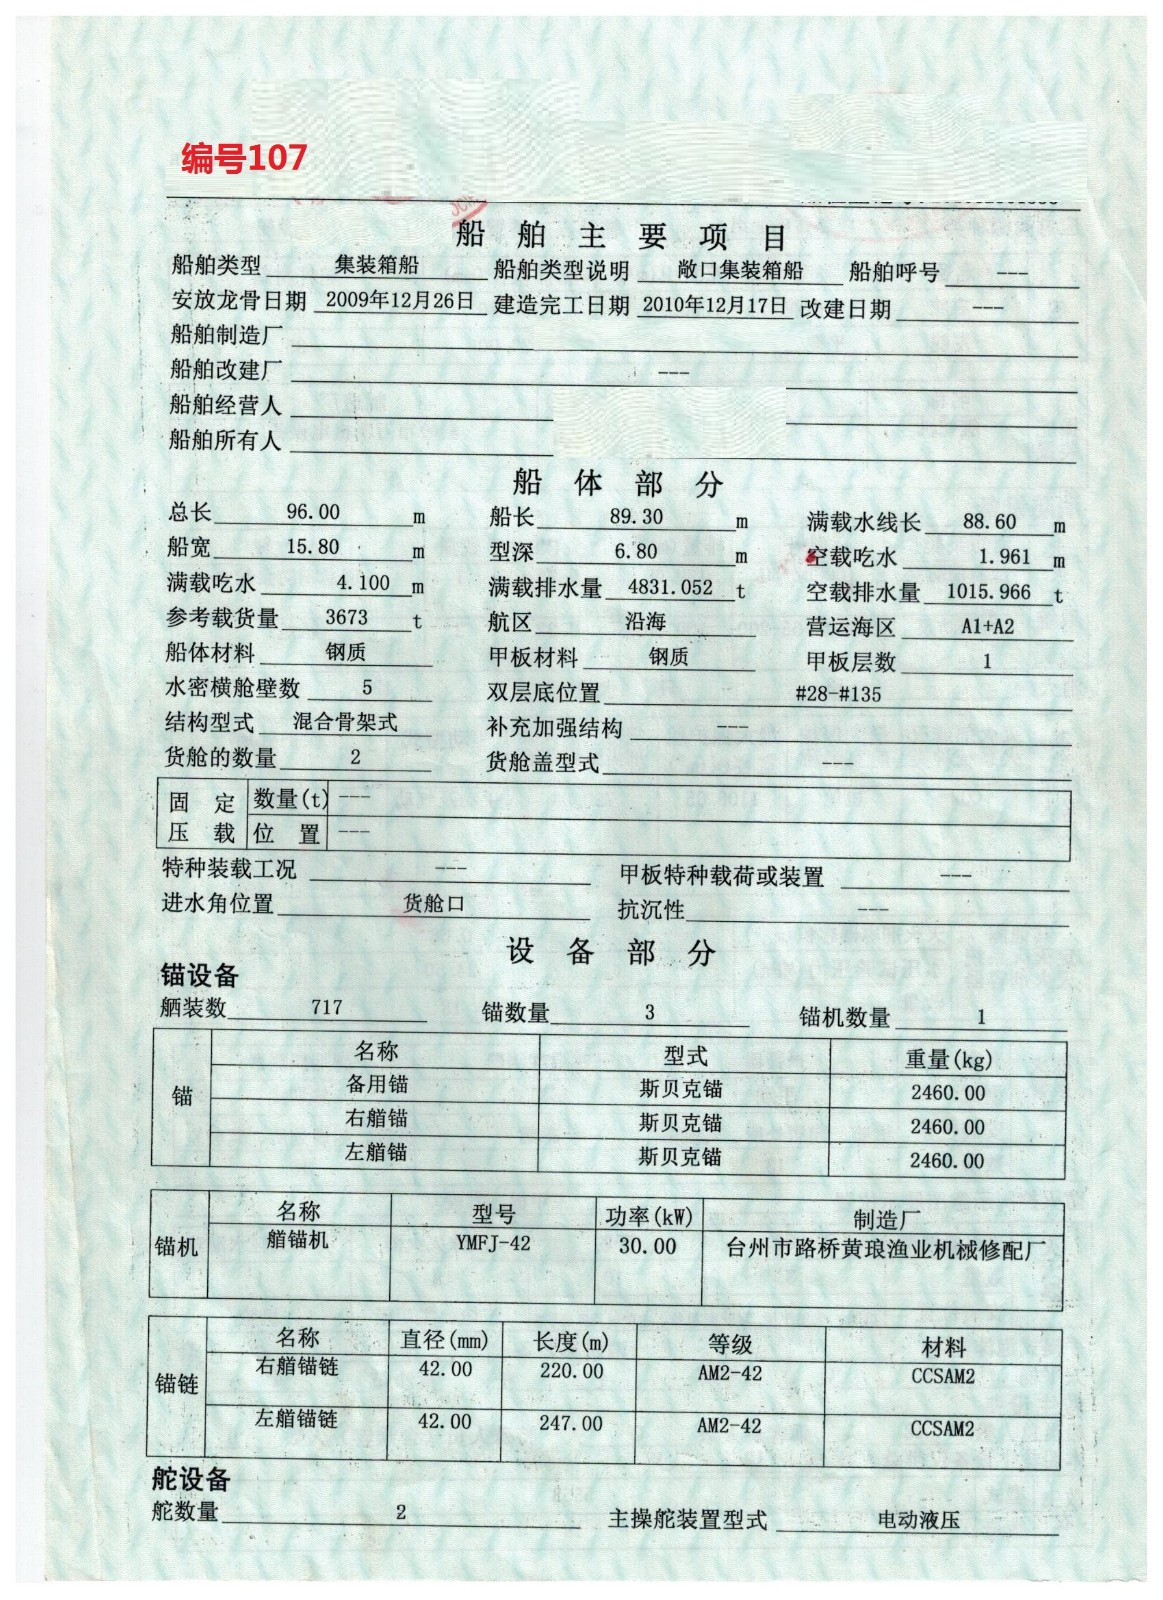 编号107
船舶主要项目
船舶类型 集装箱船 船舶类型说明 敞口集装箱船 船舶呼号 ---
安放龙骨日期 2009年12月26日 建造完工日期 2010年12月17日 改建日期 ---
船舶制造厂
船舶改建厂 ---
船舶经营人
船舶所有人
船体部分
总长 96.00 m 船长 89.30 m 满载水线长 88.60 m
船宽 15.80 m 型深 6.80 m 空载吃水 1.961 m
满载吃水 4.100 m 满载排水量 4831.052 t 空载排水量 1015.966 t
参考载货量 3673 t 航区 沿海 营运海区 A1+A2
船体材料 钢质 甲板材料 钢质 甲板层数 1
水密横舱壁数 5 双层底位置 #28-#135
结构型式 混合骨架式 补充加强结构 ---
货舱的数量 2 货舱盖型式 ---
固定压载 数量(t) ---
位置 ---
特种装载工况 --- 甲板特种载荷或装置 ---
进水角位置 货舱口 抗沉性 ---
设备部分
锚设备
舾装数 717 锚数量 3 锚机数量 1
锚 名称 型式 重量(kg)
备用锚 斯贝克锚 2460.00
右艏锚 斯贝克锚 2460.00
左艏锚 斯贝克锚 2460.00
锚机 名称 型号 功率(kW) 制造厂
艏锚机 YMFJ-42 30.00 台州市路桥黄琅渔业机械修配厂
锚链 名称 直径(mm) 长度(m) 等级 材料
右艏锚链 42.00 220.00 AM2-42 CCSAM2
左艏锚链 42.00 247.00 AM2-42 CCSAM2
舵设备
舵数量 2 主操舵装置型式 电动液压